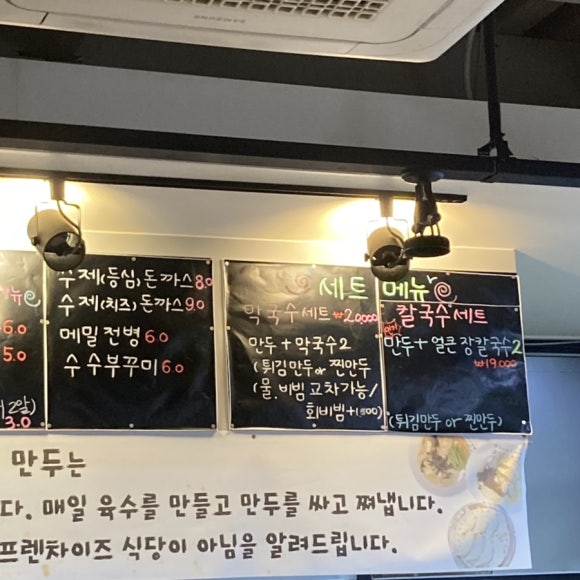 SAMSUNG
6.0
5.0
3.0
수제(등심)돈까스 8.0
수제(치즈)돈까스 9.0
메밀전병 6.0
수수부꾸미 6.0
세트 메뉴
막국수세트 ₩20,000
만두+막국수2
(튀김만두or찐만두
(물.비빔 교차가능/
회비빔+
칼국수세트
만두+얼큰장칼국수2
₩19,000
(튀김만두 or 찐만두)
만두는
다. 매일 육수를 만들고 만두를 싸고 쪄냅니다.
프렌차이즈 식당이 아님을 알려드립니다.